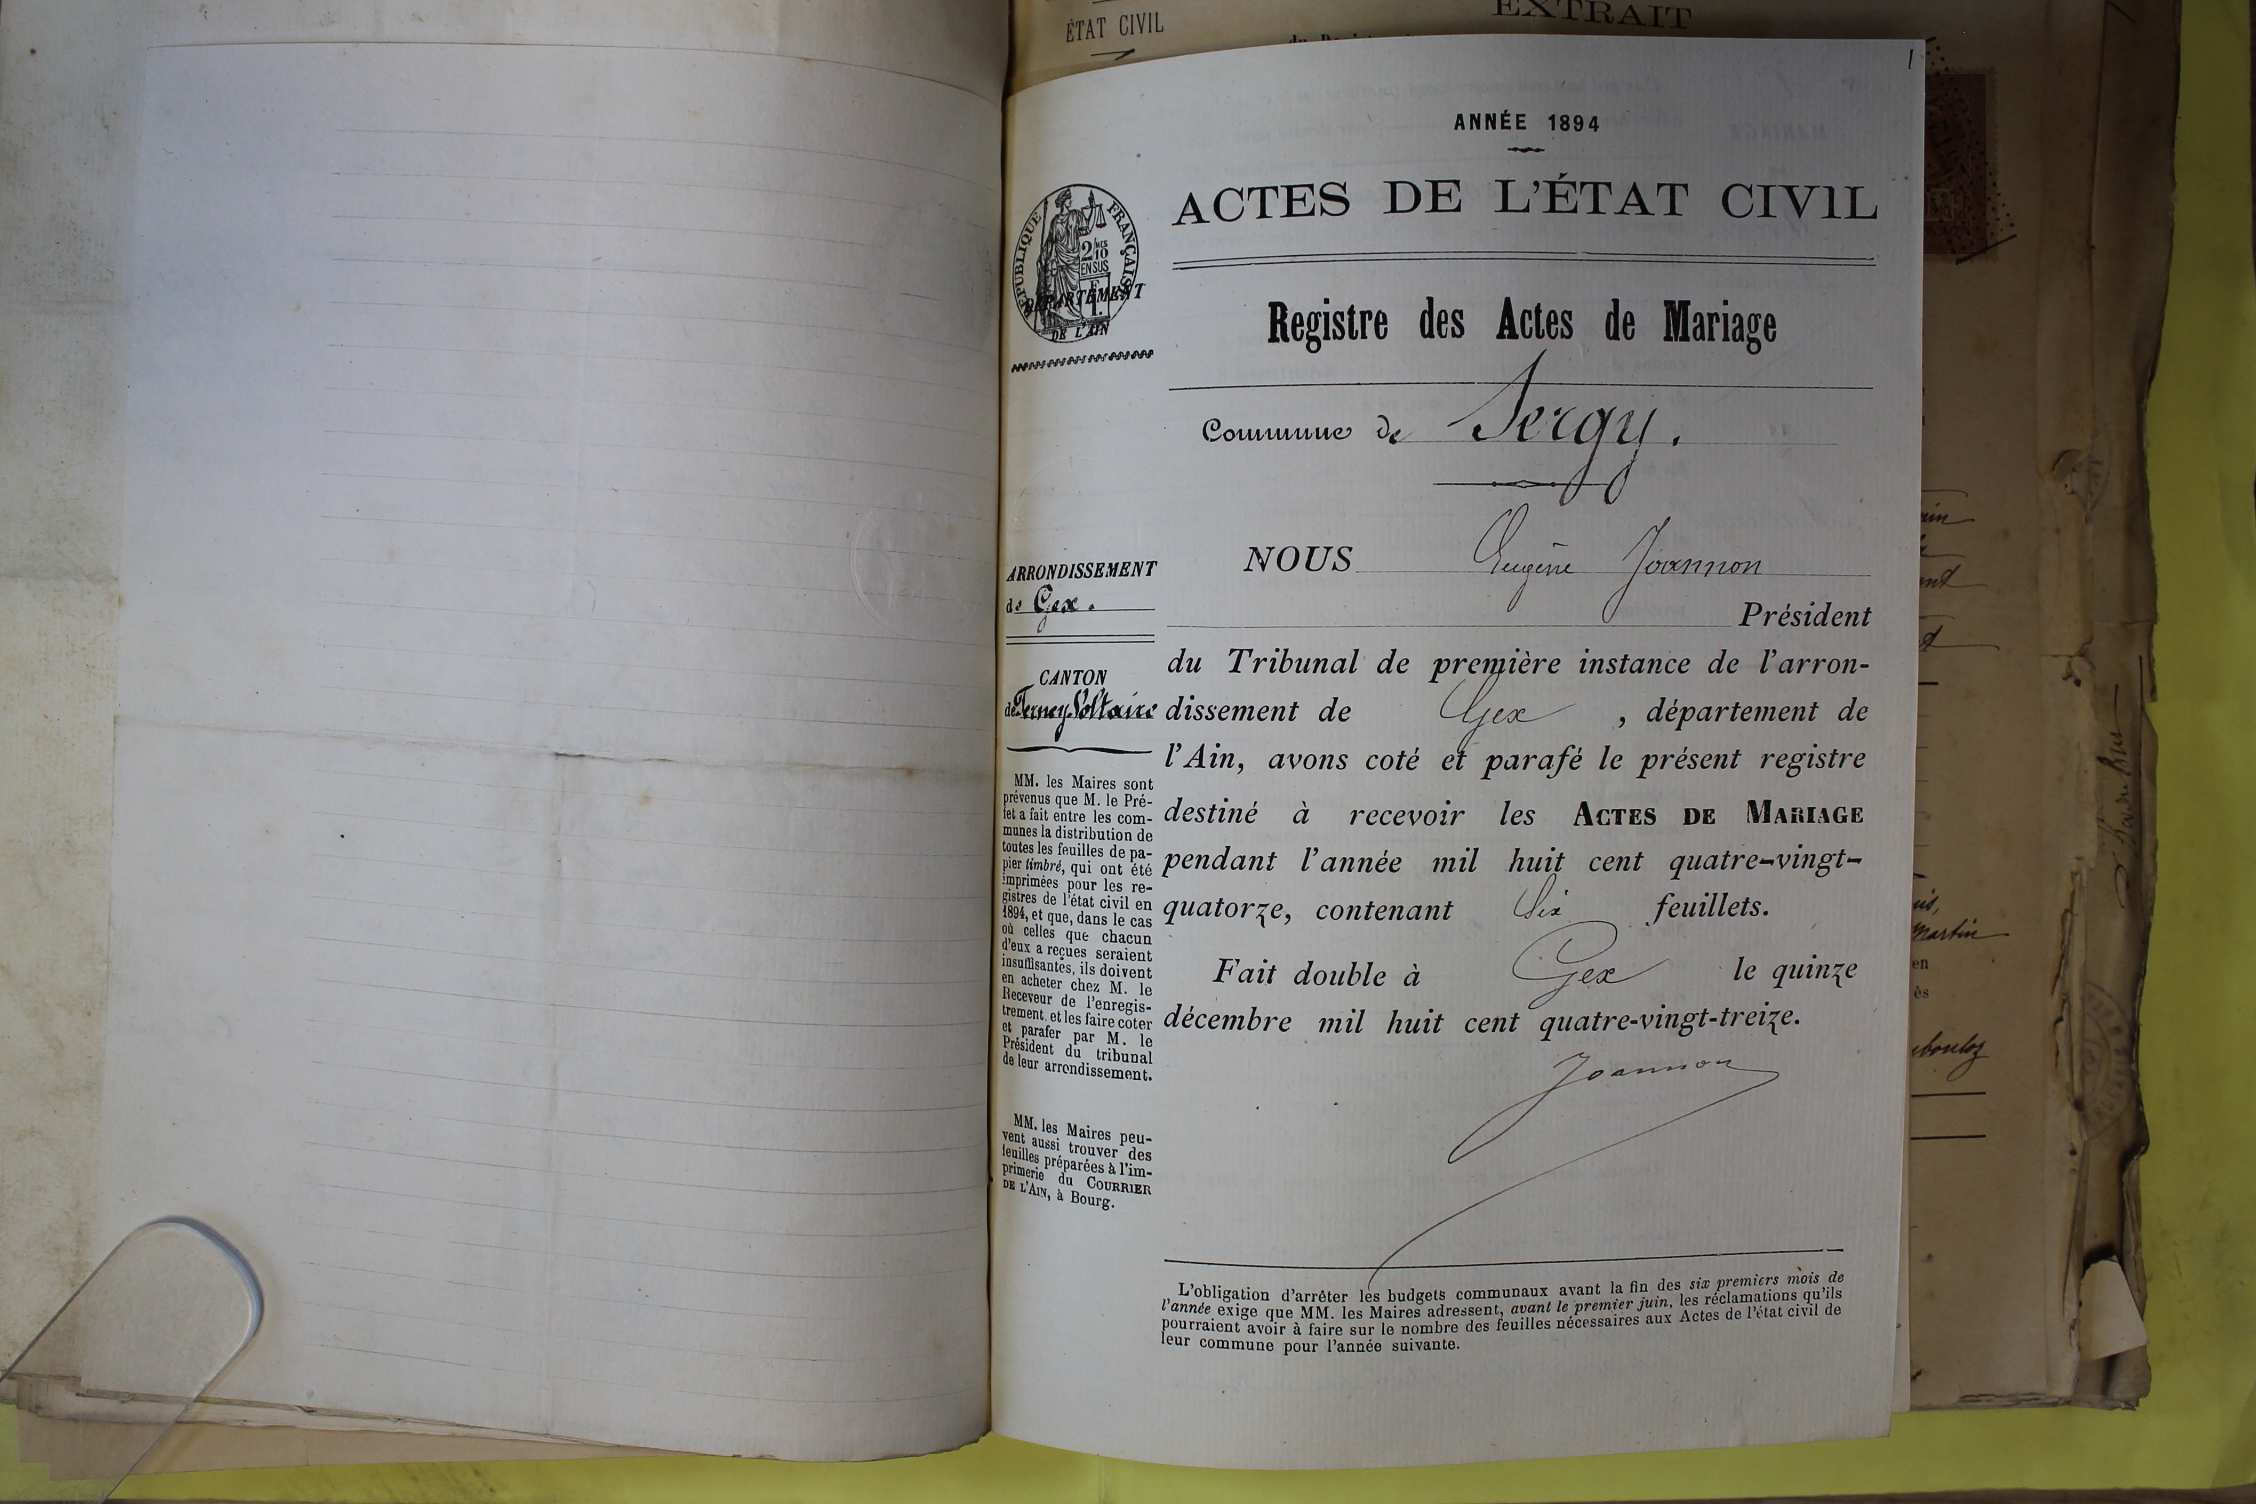 ÉTAT CIVIL
EXTRAIT
1
ANNÉE 1894
ACTES DE L'ÉTAT CIVIL
RÉPUBLIQUE FRANÇAISE
2/10
EN SUS
DÉPARTEMENT
DE L'AIN
Registre des Actes de Mariage
Commune de Sergy.
NOUS Eugène Joannon
Président
du Tribunal de première instance de l'arron-
dissement de Gex, département de
l'Ain, avons coté et parafé le présent registre
destiné à recevoir les ACTES DE MARIAGE
pendant l'année mil huit cent quatre-vingt-
quatorze, contenant Six feuillets.
Fait double à Gex le quinze
décembre mil huit cent quatre-vingt-treize.
Joannon
ARRONDISSEMENT
de Gex.
CANTON
de Ferney-Voltaire
MM. les Maires sont
prévenus que M. le Pré-
fet a fait entre les com-
munes la distribution de
toutes les feuilles de pa-
pier timbré, qui ont été
imprimées pour les re-
gistres de l'état civil en
1894, et que, dans le cas
où celles que chacun
d'eux a reçues seraient
insuffisantes, ils doivent
en acheter chez M. le
Receveur de l'enregis-
trement et les faire coter
et parafer par M. le
Président du tribunal
de leur arrondissement.
MM. les Maires peu-
vent aussi trouver des
feuilles préparées à l'im-
primerie du COURRIER
DE L'AIN, à Bourg.
L'obligation d'arrêter les budgets communaux avant la fin des six premiers mois de
l'année exige que MM. les Maires adressent, avant le premier juin, les réclamations qu'ils
pourraient avoir à faire sur le nombre des feuilles nécessaires aux Actes de l'état civil de
leur commune pour l'année suivante.
Martin
en
ès